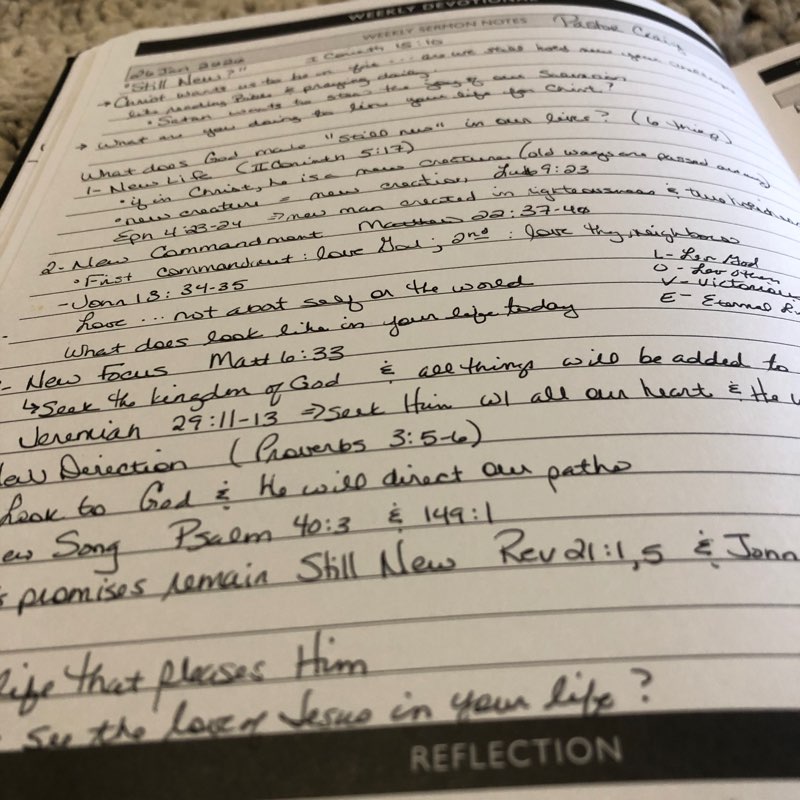 WEEKLY DEVOTIONAL
WEEKLY SERMON NOTES Pastor Craig
26 Jan 2020 I Corinth 15:10
"Still New?"
→ Christ wants us to be on fire ... are we still
like reading Bible & praying daily
• Satan wants to steal the joy of our Salvation
→ What are you doing to live your life for Christ?
What does God make "Still new" in our lives? (6 things)
1- New Life (II Corinth 5:17)
• if in Christ, he is a new creature (old ways are passed away)
• new creature = new creation Luke 9:23
Eph 4:23-24 ⇒ new man created in righteousness & true holiness
2- New Commandment Matthew 22:37-40
• First commandment: love God; 2nd: love thy neighbor
- John 13:34-35
Love ... not abot self or the world
What does look like in your life today
L- Lov God
O- Lov others
V- Victorious
E- Eternal
- New Focus Matt 6:33
↳ Seek the kingdom of God & all things will be added to
Jeremiah 29:11-13 ⇒ seek Him w/ all our heart & He
New Direction (Proverbs 3:5-6)
Look to God & He will direct our paths
ew Song Psalm 40:3 & 149:1
s promises remain Still New Rev 21:1,5 & John
life that pleases Him
see the love of Jesus in your life?
REFLECTION